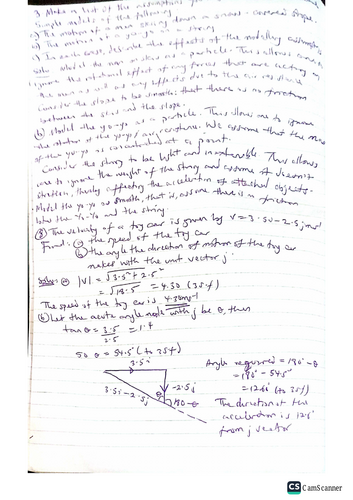 3. Make a list of the assumptions you
simple models of the following
a) The motion of a man skiing down a snow-covered slope.
b) The motion of a yo-yo on a string
c) In each case, describe the effects of the modelling assumptions
Model the man skier as a particle. This allows one to
ignore the rotational effect of any forces that are acting on
the man as well as any effects due to the air resistance
Consider the slope to be smooth: that there is no friction
between the skis and the slope.
(b) Model the yo-yo as a particle. This allows one to ignore
the rotation of the yo-yo/air resistance. We assume that the mass
of the yo-yo is concentrated at a point.
Consider the string to be light and inextensible. This allows
one to ignore the weight of the string and assume it doesn't
stretch, thereby affecting the acceleration of attached objects.
Model the yo-yo as smooth, that is, assume there is no friction
b/w the yo-yo and the string.
The velocity of a toy car is given by v = 3.5i - 2.5j ms⁻¹
Find: (a) the speed of the toy car
(b) the angle the direction of motion of the toy car
makes with the unit vector j.
|V| = √3.5² + 2.5²
= √18.5 = 4.30 (3sf)
The speed of the toy car is 4.30ms⁻¹
(b) Let the acute angle made with j be θ, then
tan θ = 3.5/2.5 = 1.4
So θ = 54.5° (to 3sf)
3.5i
3.5i - 2.5j
θ
-2.5j
180 - θ
Angle required = 180° - θ
= 180° - 54.5°
(to 3sf)
The direction of the
acceleration is
from j vector
CS CamScanner